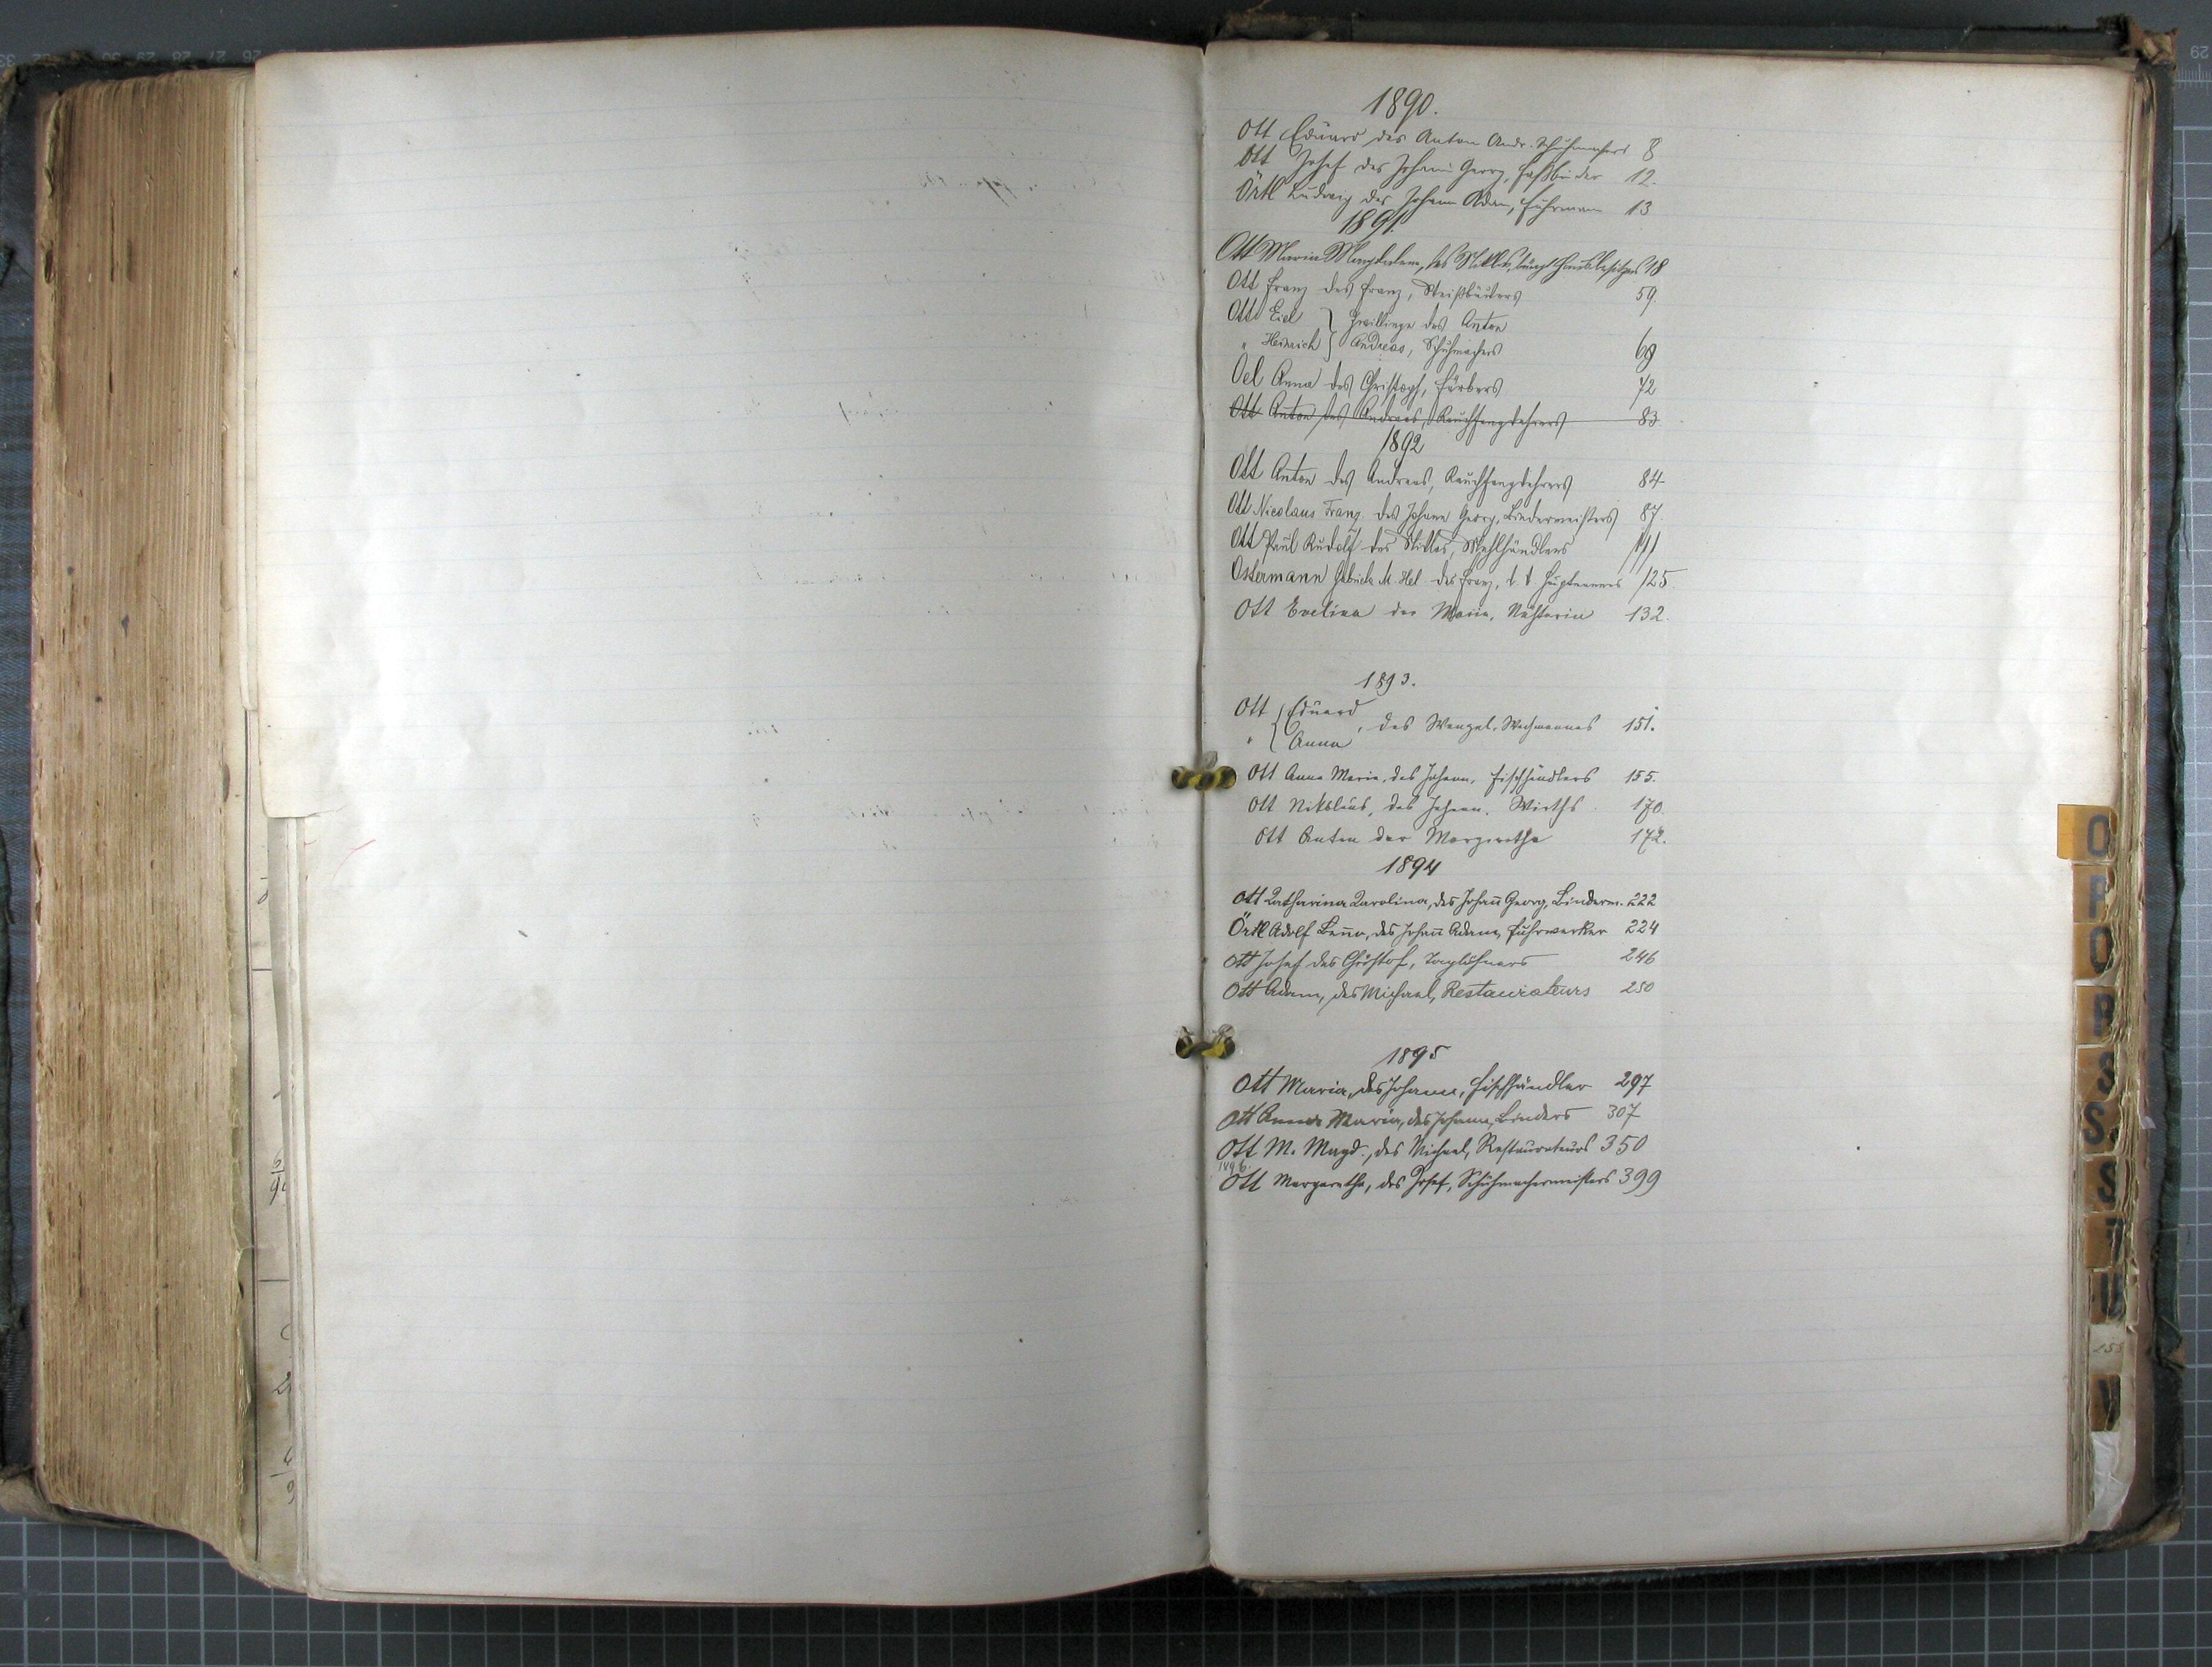 1890.
Ott Eduard des Anton Andr. Schuhmachers 8
Ott Josef des Johann Georg, Faßbinder 12.
Örtl Ludwig des Johann Adam, Fuhrmann 13
1891.
Ott Maria Magdalena, des Niklas, bürgl. Hausbesitzers 18
Ott Franz des Franz, Weißbäckers 59.
Ott Zwillinge des Anton
" Heinrich } Andreas, Schuhmachers 69
Oel Anna des Christoph, Färbers 72
Ott Anton des Andreas, Rauchfangkehrers 83
1892
Ott Anton des Andreas, Rauchfangkehrers 84
Ott Nicolaus Franz des Johann Georg, Bindermeisters 87.
Ott Paul Rudolf des Niklas, Mehlhändlers 111
Ostermann Gabriele M. Hel. des Franz, k. k. Hauptmannes 125.
Ott Evelina der Maria, Nähterin 132.
1893.
Ott { Eduard
" { Anna , des Wenzel, Wachmannes 151.
Ott Anna Maria, des Johann, Fischhändlers 155.
Ott Nikolaus, des Johann, Wirths 170.
Ott Anton der Margaretha 172.
1894
Ott Katharina Karolina, des Johann Georg, Binderm. 222
Örtl Adolf Benno, des Johann Adam, Fuhrwerker 224
Ott Josef des Christof, Taglöhners 246
Ott Adam, des Michael, Restaurateurs 250
1895
Ott Maria, des Johann, Fischhändler 297
Ott Anna Maria, des Johann, Binders 307
Ott M. Magd., des Michael, Restaurateurs 350
1896.
Ott Margaretha, des Josef, Schuhmachermeisters 399
O
P
Q
R
S
S
T
U
V